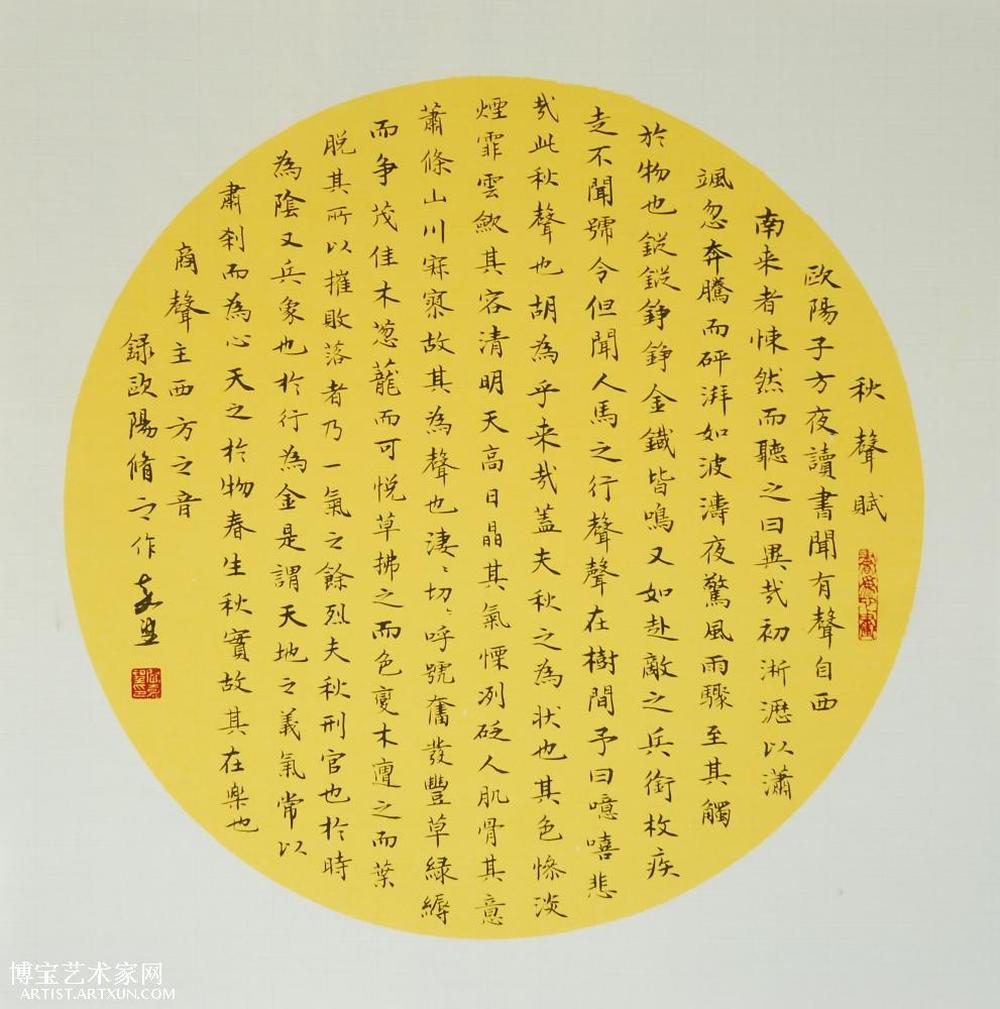 秋聲賦
歐陽子方夜讀書聞有聲自西
南来者悚然而聽之曰異㢤初淅瀝以瀟
颯忽奔騰而砰湃如波濤夜驚風雨驟至其觸
於物也鏦鏦錚錚金鐵皆鳴又如赴敵之兵銜枚疾
走不聞號令但聞人馬之行聲聲在樹間予曰噫嘻悲
㢤此秋聲也胡為乎来㢤蓋夫秋之為状也其色慘淡
煙霏雲歛其容清明天高日晶其氣慄冽砭人肌骨其意
蕭條山川寂寥故其為聲也淒〻切〻呼號奮發豐草緑縟
而争茂佳木葱蘢而可悦草拂之而色變木遭之而葉
脱其所以摧敗落者乃一氣之餘烈夫秋刑官也於時
為陰又兵象也於行為金是謂天地之義氣常以
肅刹而為心天之於物春生秋實故其在樂也
商聲主西方之音
録歐陽脩之作
博宝艺术家网
ARTIST.ARTXUN.COM